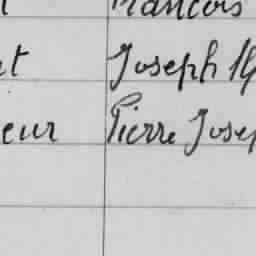 François
rt Joseph
eur Pierre Josep